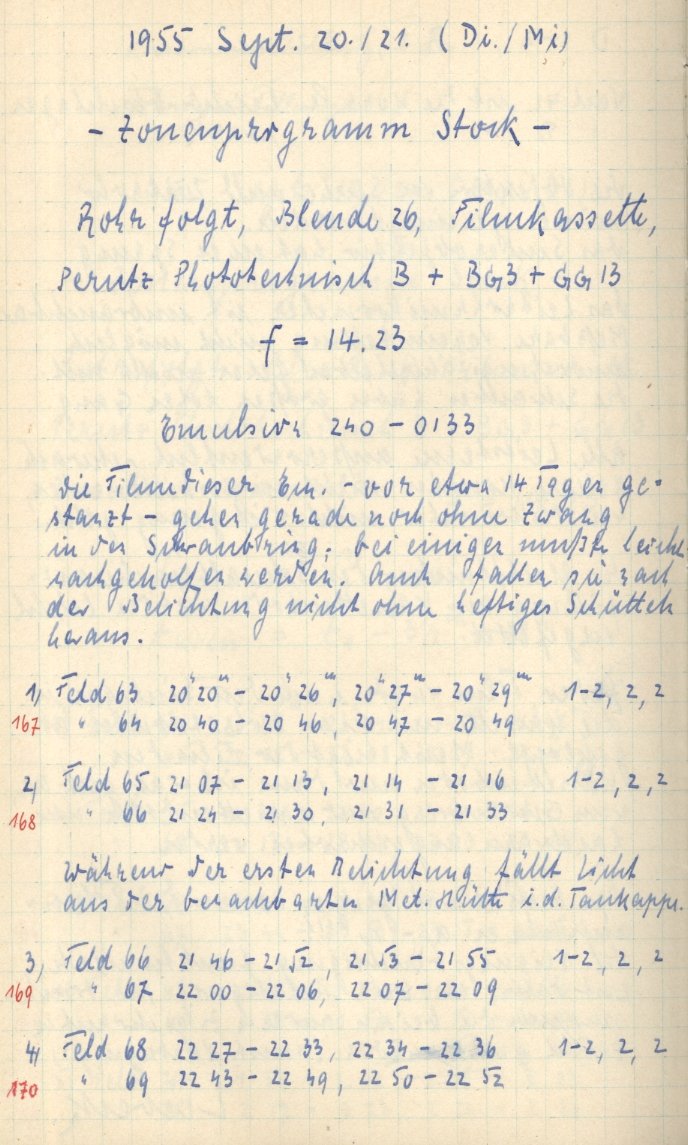 1955 Sept. 20./21. (Di./Mi)
- Zonenprogramm Stock -
Rohr folgt, Blende 26, Filmkassette,
Perutz Phototechnisch B + BG3 + GG13
f = 14.23
Emulsion 240-0133
Die Filme dieser Em. - vor etwa 14 Tagen ge-
stanzt - gehen gerade noch ohne Zwang
in den Schraubring; bei einigen mußte leicht
nachgeholfen werden. Auch fallen sie nach
der Belichtung nicht ohne heftiges Schütteln
heraus.
1) Feld 63 20h20m - 20h26m, 20h27m - 20h29m 1-2, 2, 2
167 " 64 20 40 - 20 46, 20 47 - 20 49
2) Feld 65 21 07 - 21 13, 21 14 - 21 16 1-2, 2, 2
168 " 66 21 24 - 21 30, 21 31 - 21 33
Während der ersten Belichtung fällt Licht
aus der benachbarten Met. Hütte i.d. Taukappe.
3) Feld 66 21 46 - 21 52, 21 53 - 21 55 1-2, 2, 2
169 " 67 22 00 - 22 06, 22 07 - 22 09
4) Feld 68 22 27 - 22 33, 22 34 - 22 36 1-2, 2, 2
170 " 69 22 43 - 22 49, 22 50 - 22 52